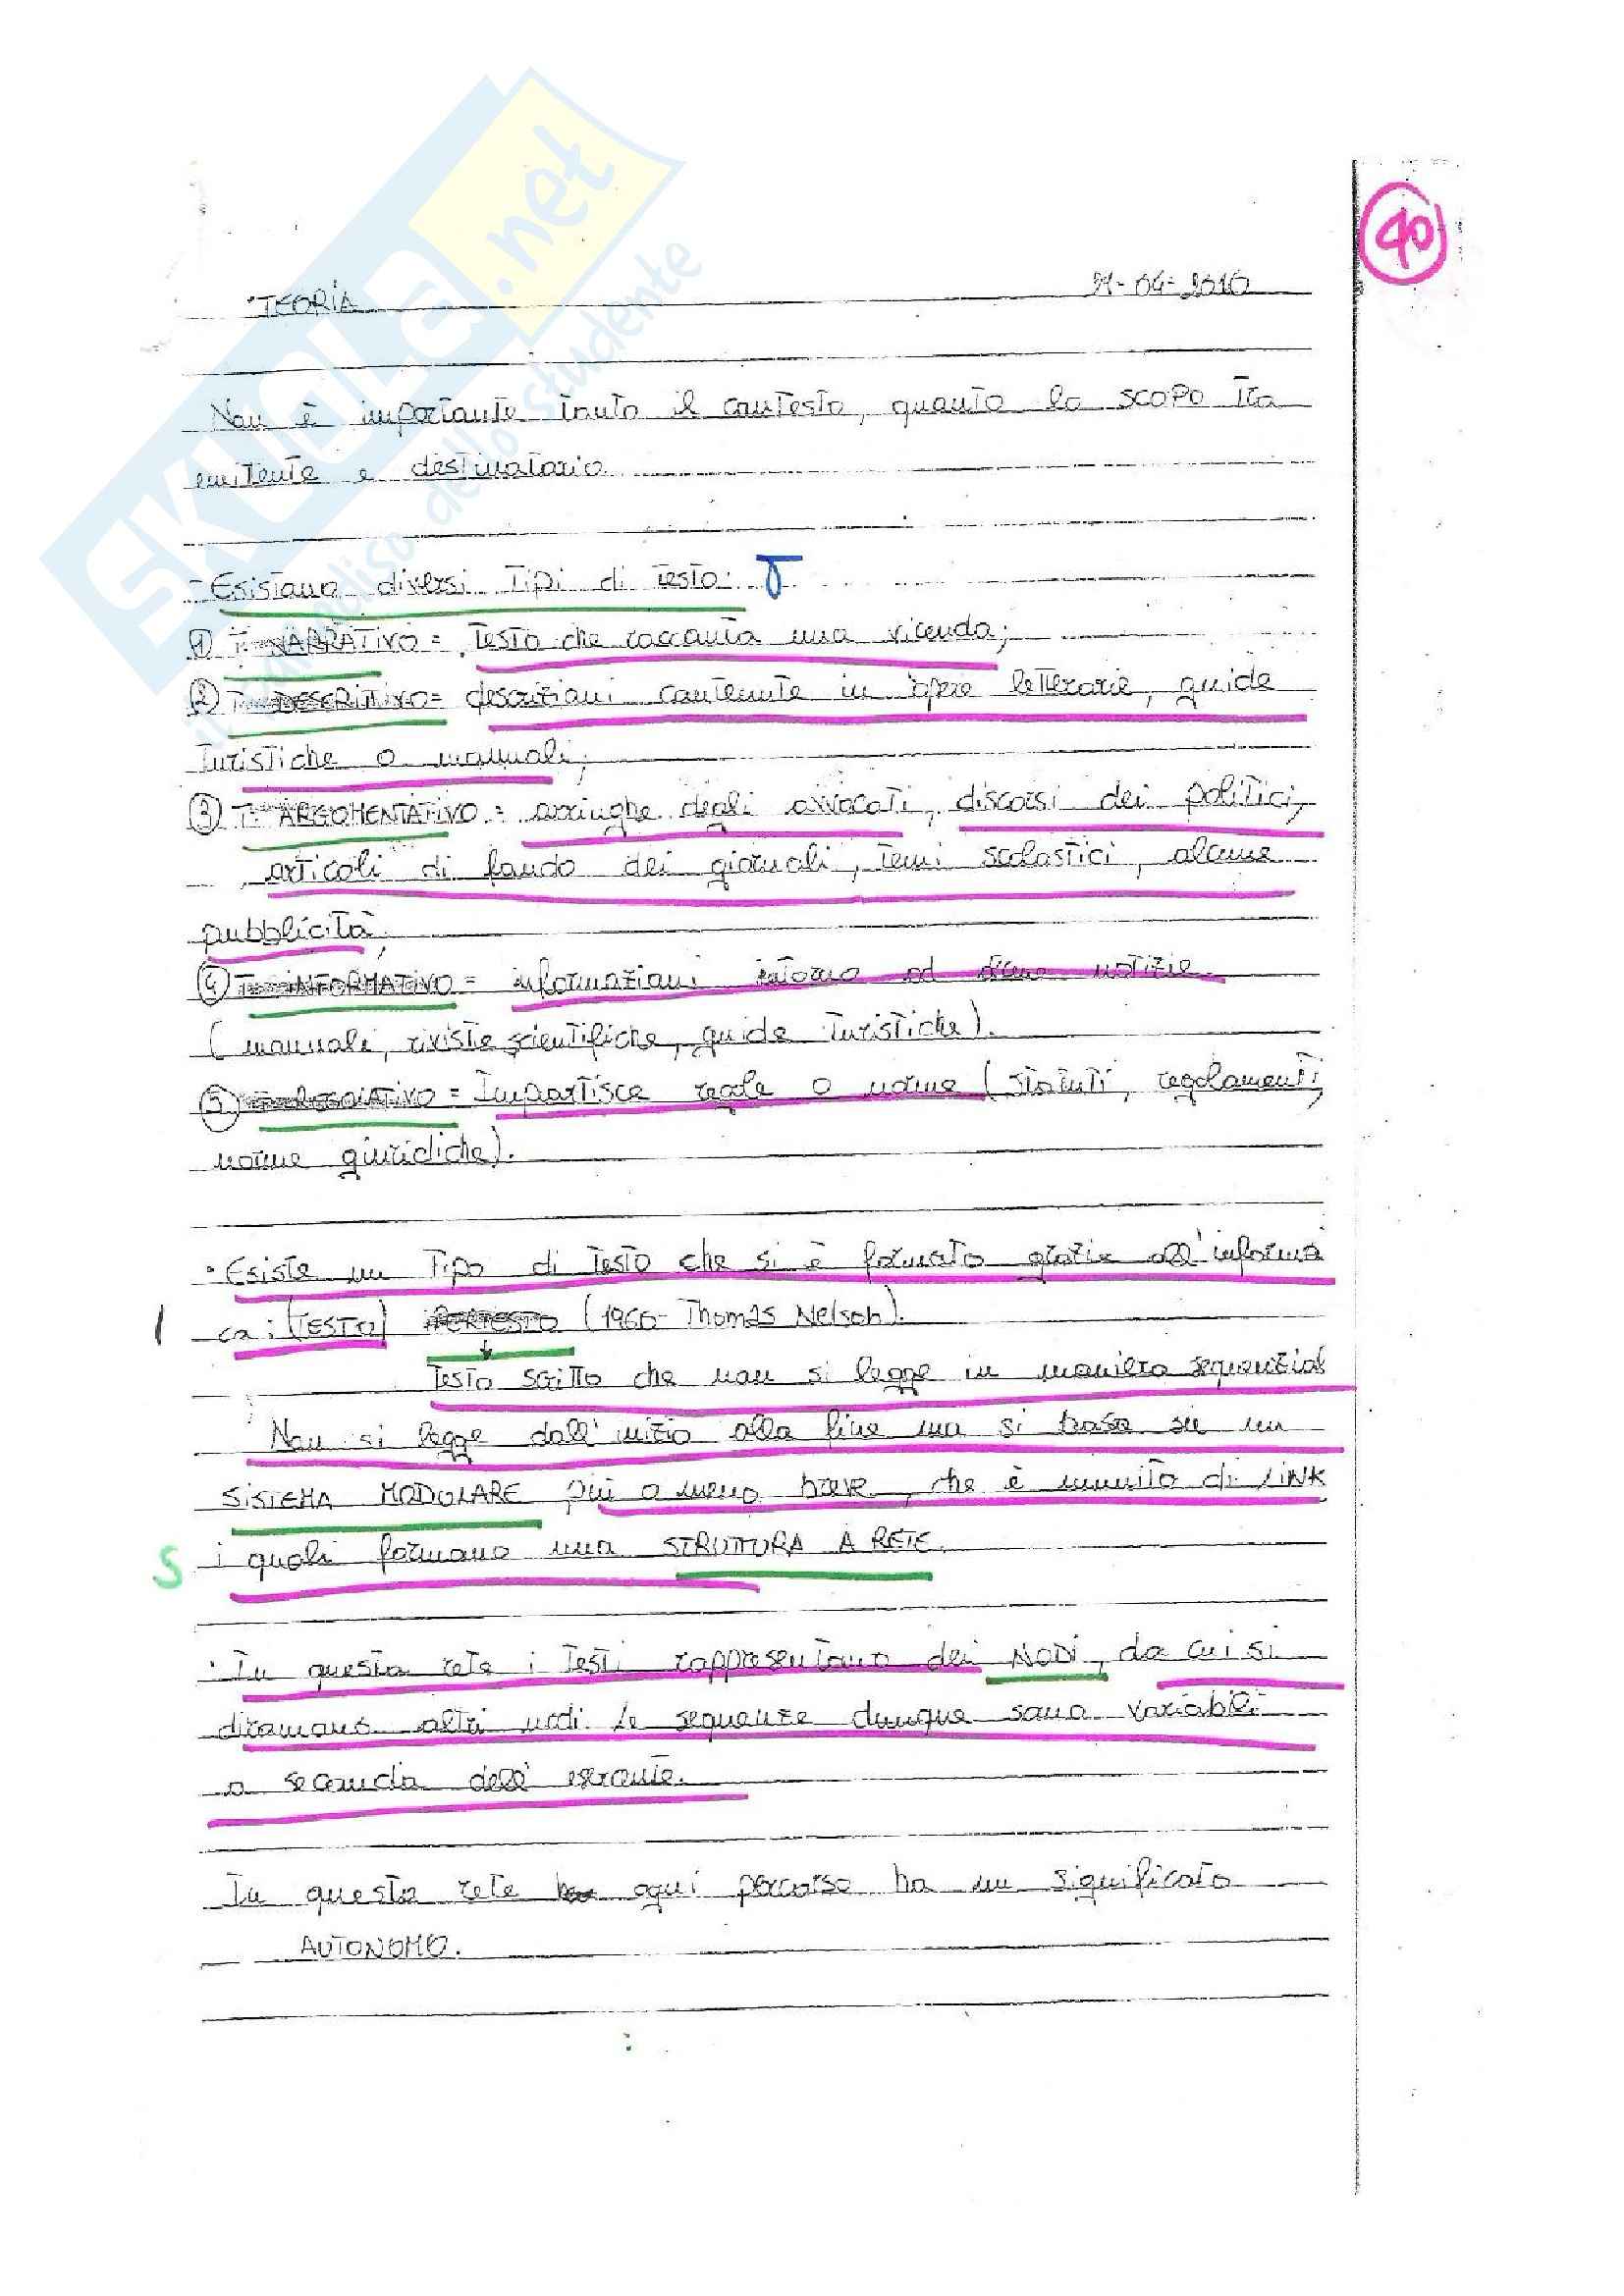 40
TEORIA 21-04-2010
Non è importante tanto il contesto, quanto lo SCOPO tra
emittente e destinatario
- Esistono diversi tipi di testo:
1) T. NARRATIVO = testo che racconta una vicenda;
2) T. DESCRITTIVO = descrizioni contenute in opere letterarie, guide
turistiche o manuali;
3) T. ARGOMENTATIVO = arringhe degli avvocati, discorsi dei politici,
articoli di fondo dei giornali, temi scolastici, alcune
pubblicità;
4) T. INFORMATIVO = informazioni intorno ad notizie.
(manuali, riviste scientifiche, guide turistiche).
5) T. REGOLATIVO = Impartisce regole o norme (statuti, regolamenti,
norme giuridiche).
• Esiste un tipo di testo che si è formato grazie all'informa
ca: (TESTO) IPERTESTO (1960- Thomas Nelson).
↓
Testo scritto che non si legge in maniera sequenzial
Non si legge dall'inizio alla fine ma si basa su un
SISTEMA MODULARE più o meno breve, che è munito di LINK
S i quali formano una STRUTTURA A RETE.
• In questa rete i testi rappresentano dei NODI, da cui si
diramano altri nodi. Le sequenze dunque sono variabili
a seconda dell'
In questa rete ogni percorso ha un significato
AUTONOMO.
SKUOLA.net
il paradiso dello studente